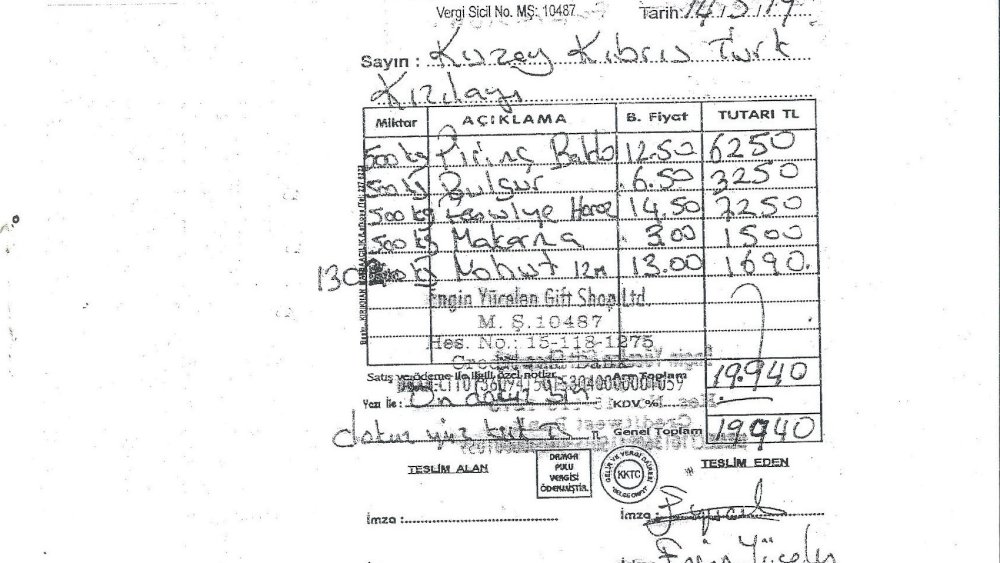 Vergi Sicil No. MŞ: 10487 Tarih: 14/5/19
Sayın : Kuzey Kıbrıs Türk
Kızılayı
Miktar AÇIKLAMA B. Fiyat TUTARI TL
500 kg Pirinç Baldo 12.50 6250
500 kg Bulgur 6.50 3250
500 kg Horoz 14.50 7250
500 kg Makarna 3.00 1500
130 kg Nohut 12m 13.00 1690.
Engin Yücelen Gift Shop Ltd.
M. Ş. 10487
Hes. No.: 15-118-1275
Satış ve ödeme ile ilgili özel notlar Ara Toplam 19.940
Yazı ile : On dokuz bin KDV %
dokuz yüz kırk TL TL Genel Toplam 19940
TESLİM ALAN
DAMGA
PULU
VERGİSİ
ÖDENMİŞTİR.
GELİR VE VERGİ DAİRESİ
KKTC
TESLİM EDEN
İmza : İmza :
Engin Yücelen